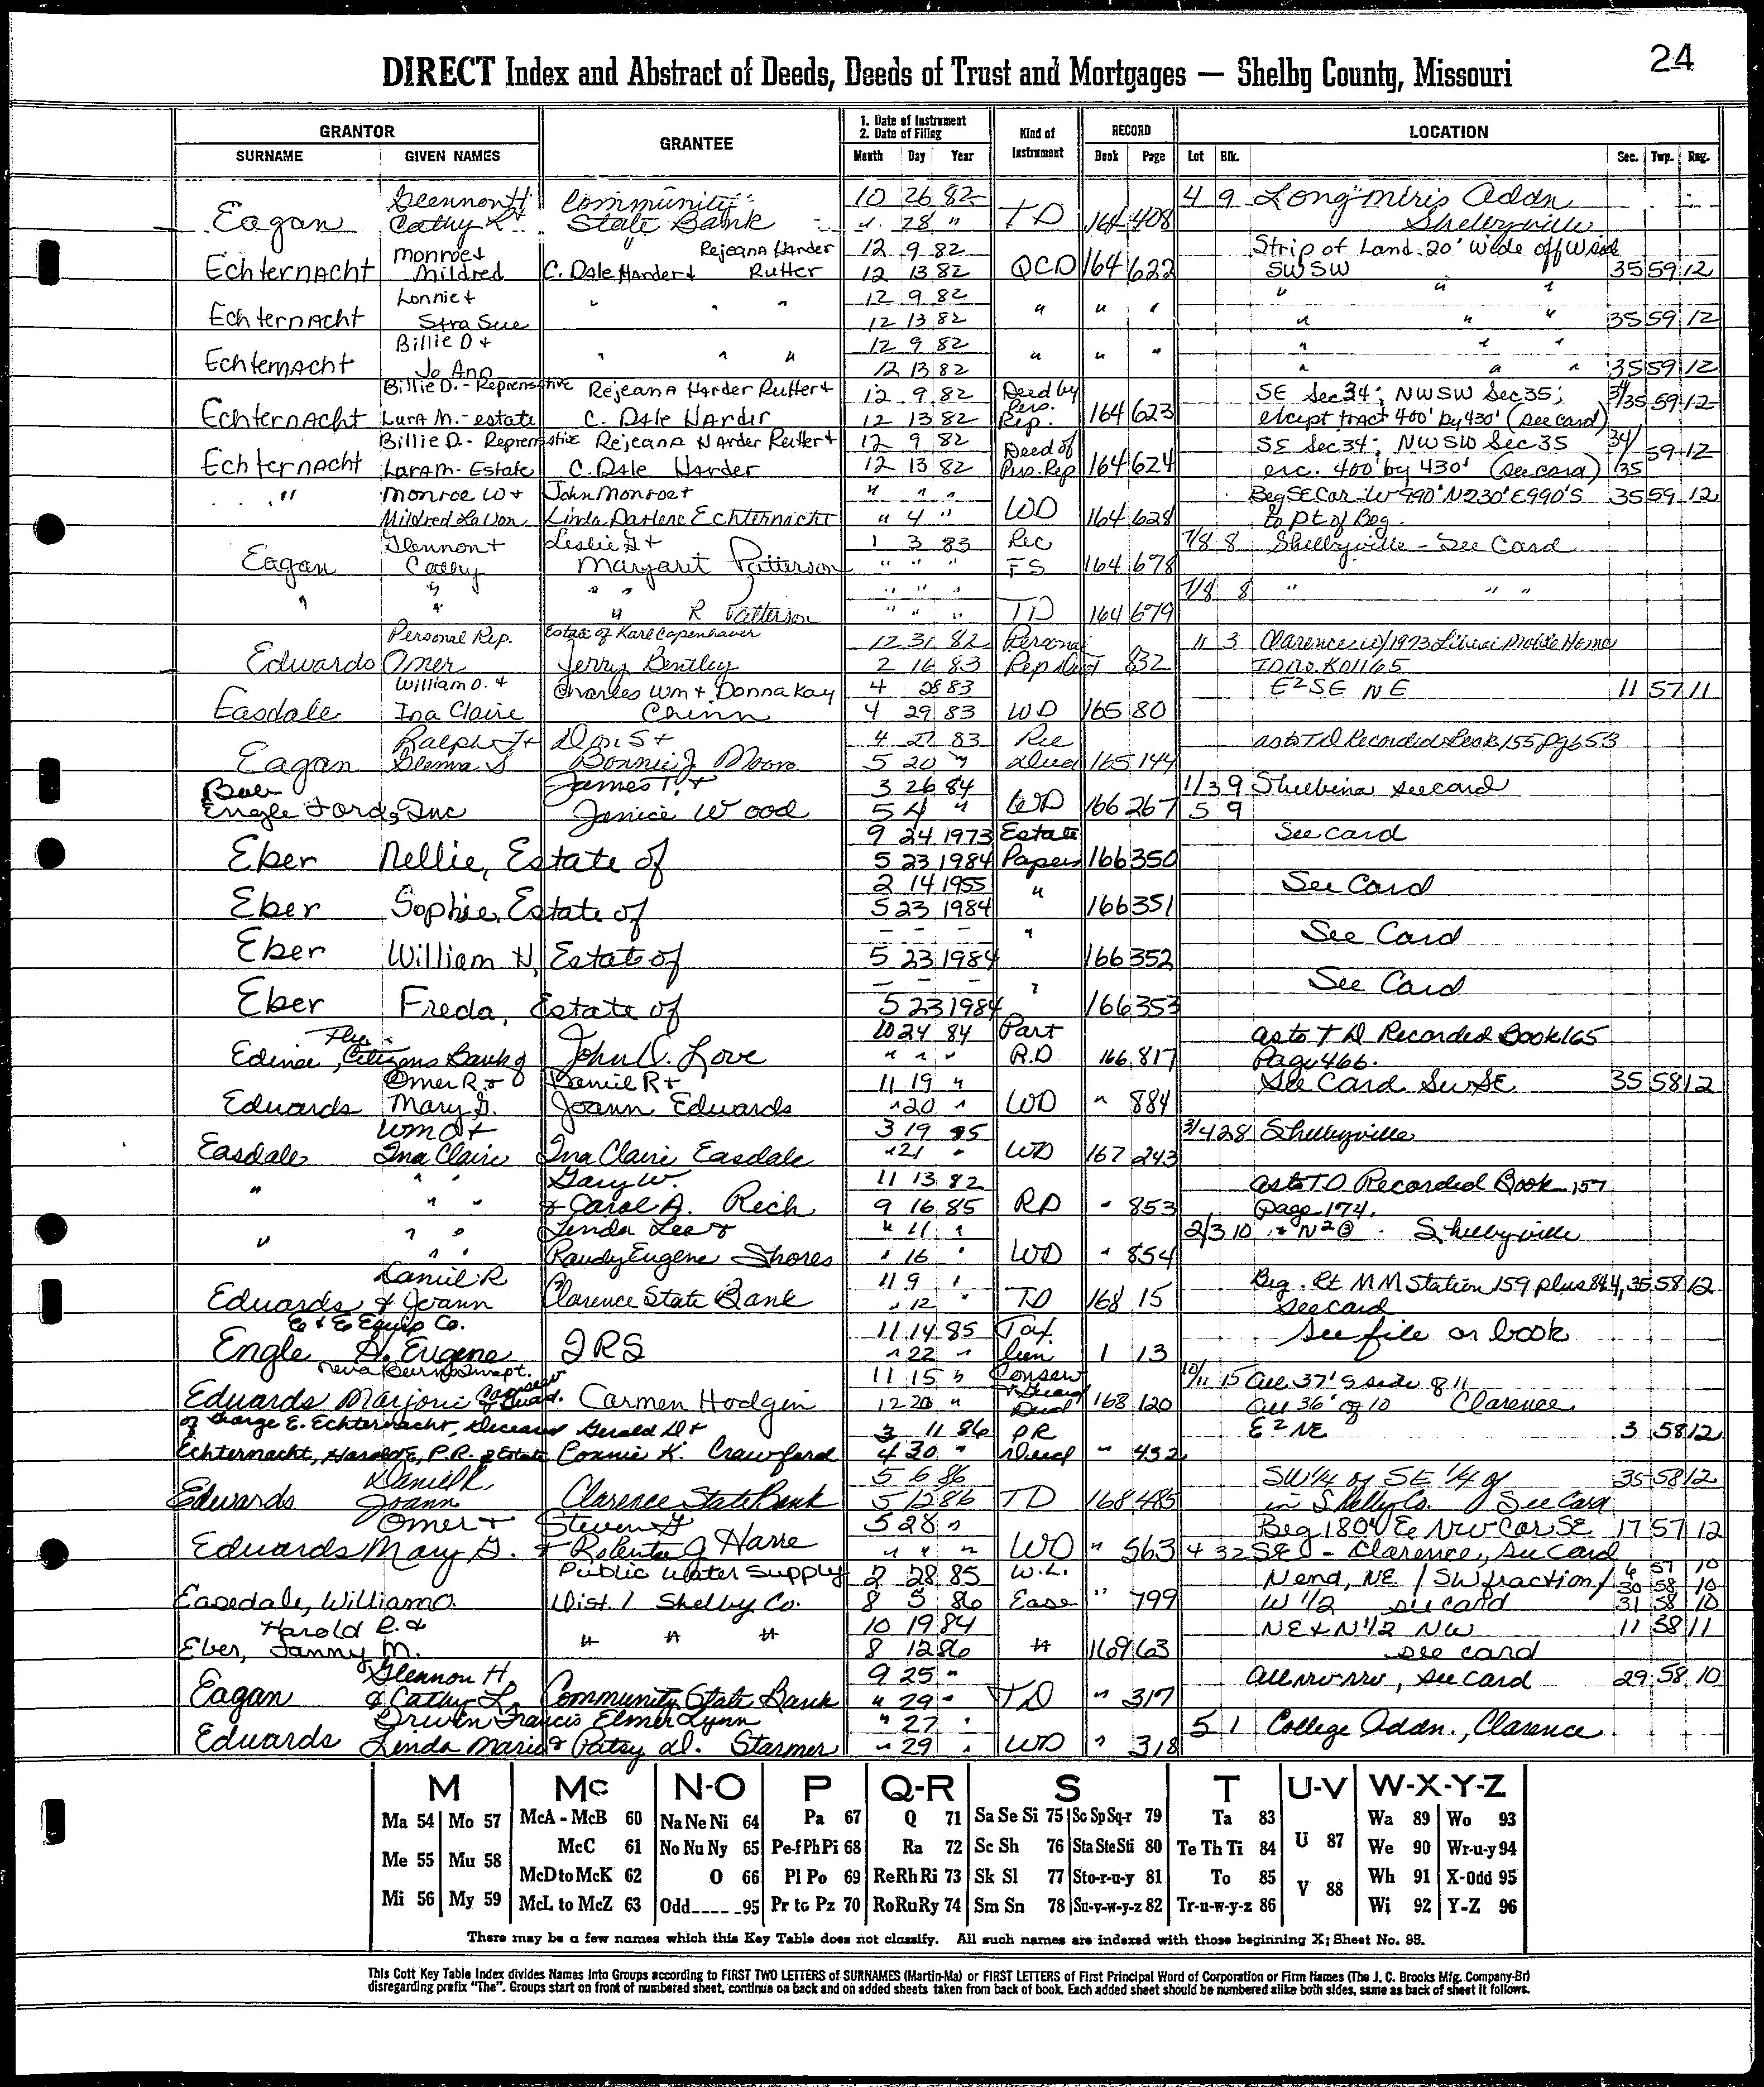 24
DIRECT Index and Abstract of Deeds, Deeds of Trust and Mortgages — Shelby County, Missouri
GRANTOR GRANTEE 1. Date of Instrument 2. Date of Filing Kind of Instrument RECORD LOCATION
SURNAME GIVEN NAMES Month Day Year Book Page Lot Blk. Sec. Twp. Rng.
Glennon H Community 10 26 82 4 9 Addn
Eagan Cathy L State Bank " 28 " TD 164 408 Shelbyville
Monroe + " Rejeana Harder 12 9 82 Strip of Land 20' wide off W side
Echternacht Mildred C. Dale Harder + Rutter 12 13 82 QCD 164 622 SWSW 35 59 12
Lonnie + " " " 12 9 82 " " " " " "
Echternacht Sue 12 13 82 " " " 35 59 12
Billie D + " " " 12 9 82 " " " " " "
Echternacht Jo Ann 12 13 82 " " " 35 59 12
Billie D. - Rejeana Harder Rutter + 12 9 82 Deed by SE Sec 34; NWSW Sec 35; 34/35 59 12
Echternacht Lura M. - estate C. Dale Harder 12 13 82 Pers. Rep. 164 623 except tract 400' by 430' (see card)
Billie D - Rejeana Harder Rutter + 12 9 82 Deed of SE Sec 34; NWSW Sec 35 34/ 59 12
Echternacht Lura M - Estate C. Dale Harder 12 13 82 Pers. Rep 164 624 exc. 400' by 430' (see card) 35
" Monroe W + John Monroe + " " " Beg SE Cor W 990' N 230' E 990' S 35 59 12
Mildred LaVon Linda Darlene Echternacht " 4 " WD 164 628 to pt of Beg.
Glennon + Leslie G + 1 3 83 Rec 7/8 8 Shelbyville - See Card
Eagan Cathy Margaret Patterson " " " FS 164 678
" " " " " " " 7/8 8 " " "
" " R Patterson " " " TD 164 679
Personal Rep. Estate of Karl Copenhaver 12 31 82 Personal 11 3 Clarence w/ 1973 Mobile Home
Edwards Omer Jerry Bentley 2 16 83 Rep Deed 832 ID No. KD1165
William O. + Charles Wm + Donna Kay 4 28 83 E2SE NE 11 57 11
Easdale Ina Claire Chinn 4 29 83 WD 165 80
Ralph J + Don S + 4 27 83 Rec as to TD Recorded Book 155 Pg 653
Eagan Glema S Bonnie J Moore 5 20 " Deed 165 144
Bob James T. + 3 26 84 1/3 9 Shelbina see card
Engle Ford, Inc Janice Wood 5 4 " WD 166 267 5 9
9 24 1973 Estate See card
Eber Nellie, Estate of 5 23 1984 Papers 166 350
2 14 1955 " See Card
Eber Sophie, Estate of 5 23 1984 166 351
- - - " See Card
Eber William H, Estate of 5 23 1984 166 352
- - - " See Card
Eber Freda, Estate of 5 23 1984 166 353
The 10 24 84 Part as to TD Recorded Book 165
Edina, Citizens Bank of John C. Love " " " R.D. 166 817 Page 466.
Omer R. + Daniel R + 11 19 " See Card SWSE 35 58 12
Edwards Mary G. Joann Edwards " 20 " WD " 884
Wm O + 3 19 85 3/4 28 Shelbyville
Easdale Ina Claire Ina Claire Easdale " 21 " WD 167 243
" " " Gary W. 11 13 82 as to TD Recorded Book 157
" " + Carol A. Rich 9 16 85 RD " 853 Page 174.
" " " Linda Lee + " 11 " 2/3 10 + N2 Shelbyville
" " Randy Eugene Shores " 16 " WD " 854
Daniel R 11 9 " Beg. Rt MM Station 159 plus 84.4, 35 58 12
Edwards + Joann Clarence State Bank " 12 " TD 168 15 see card
E + E Equip Co. 11 14 85 Tax see file or book
Engle H. Eugene IRS " 22 " lien 1 13
11 15 " Conserv 10/11 15 All 37' S side of 11
Edwards Marjorie Carmen Hodgin 12 20 " + Guard Deed 168 120 All 36' of 10 Clarence
of George E. Echternacht, Deceased Gerald D + 3 11 86 PR E2 NE 3 58 12
Echternacht, Harold E, P.R. of Estate Connie K. Crawford 4 30 " Deed " 432
Daniel R. 5 6 86 SW 1/4 of SE 1/4 of 35 58 12
Edwards Joann Clarence State Bank 5 12 86 TD 168 485 in Shelby Co. See Card
Omer + Steven G 5 28 " Beg 180' E NW Cor SE 17 57 12
Edwards Mary G. + Rolenta J Harre " " " WD " 563 4 32 - Clarence, see card
Public Water Supply 2 28 85 W.L. N end, NE / SW fraction / 6 57 10
30 58 10
Easedale, William O. Dist. 1 Shelby Co. 8 5 86 Ease " 799 W 1/2 see card 31 58 10
Harold R. + " " " 10 19 84 NE + N1/2 NW 11 58 11
Eber, Fanny M. 8 12 86 " 169 63 see card
Glennon H. 9 25 " All NW NW, see card 29 58 10
Eagan + Cathy L. Community State Bank " 29 " TD " 317
Francis Elmer Lynn " 27 " 5 1 College Addn., Clarence
Edwards Linda Marie + Patsy D. Starmer " 29 " WD " 318
M Mc N-O P Q-R S T U-V W-X-Y-Z
Ma 54 Mo 57 McA - McB 60 Na Ne Ni 64 Pa 67 Q 71 Sa Se Si 75 So Sp Sq-r 79 Ta 83 Wa 89 Wo 93
McC 61 No Nu Ny 65 Pe-f Ph Pi 68 Ra 72 Sc Sh 76 Sta Ste Sti 80 Te Th Ti 84 U 87 We 90 Wr-u-y 94
Me 55 Mu 58 McD to McK 62 O 66 Pl Po 69 Re Rh Ri 73 Sk Sl 77 Sto-r-u-y 81 To 85 V 88 Wh 91 X-Odd 95
Mi 56 My 59 McL to McZ 63 Odd 95 Pr to Pz 70 Ro Ru Ry 74 Sm Sn 78 Su-v-w-y-z 82 Tr-u-w-y-z 86 Wi 92 Y-Z 96
There may be a few names which this Key Table does not classify. All such names are indexed with those beginning X; Sheet No. 95.
This Cott Key Table Index divides Names Into Groups according to FIRST TWO LETTERS of SURNAMES (Martin-Ma) or FIRST LETTERS of First Principal Word of Corporation or Firm Names (The J. C. Brooks Mfg. Company-Br)
disregarding prefix "The". Groups start on front of numbered sheet, continue on back and on added sheets taken from back of book. Each added sheet should be numbered alike both sides, same as back of sheet it follows.